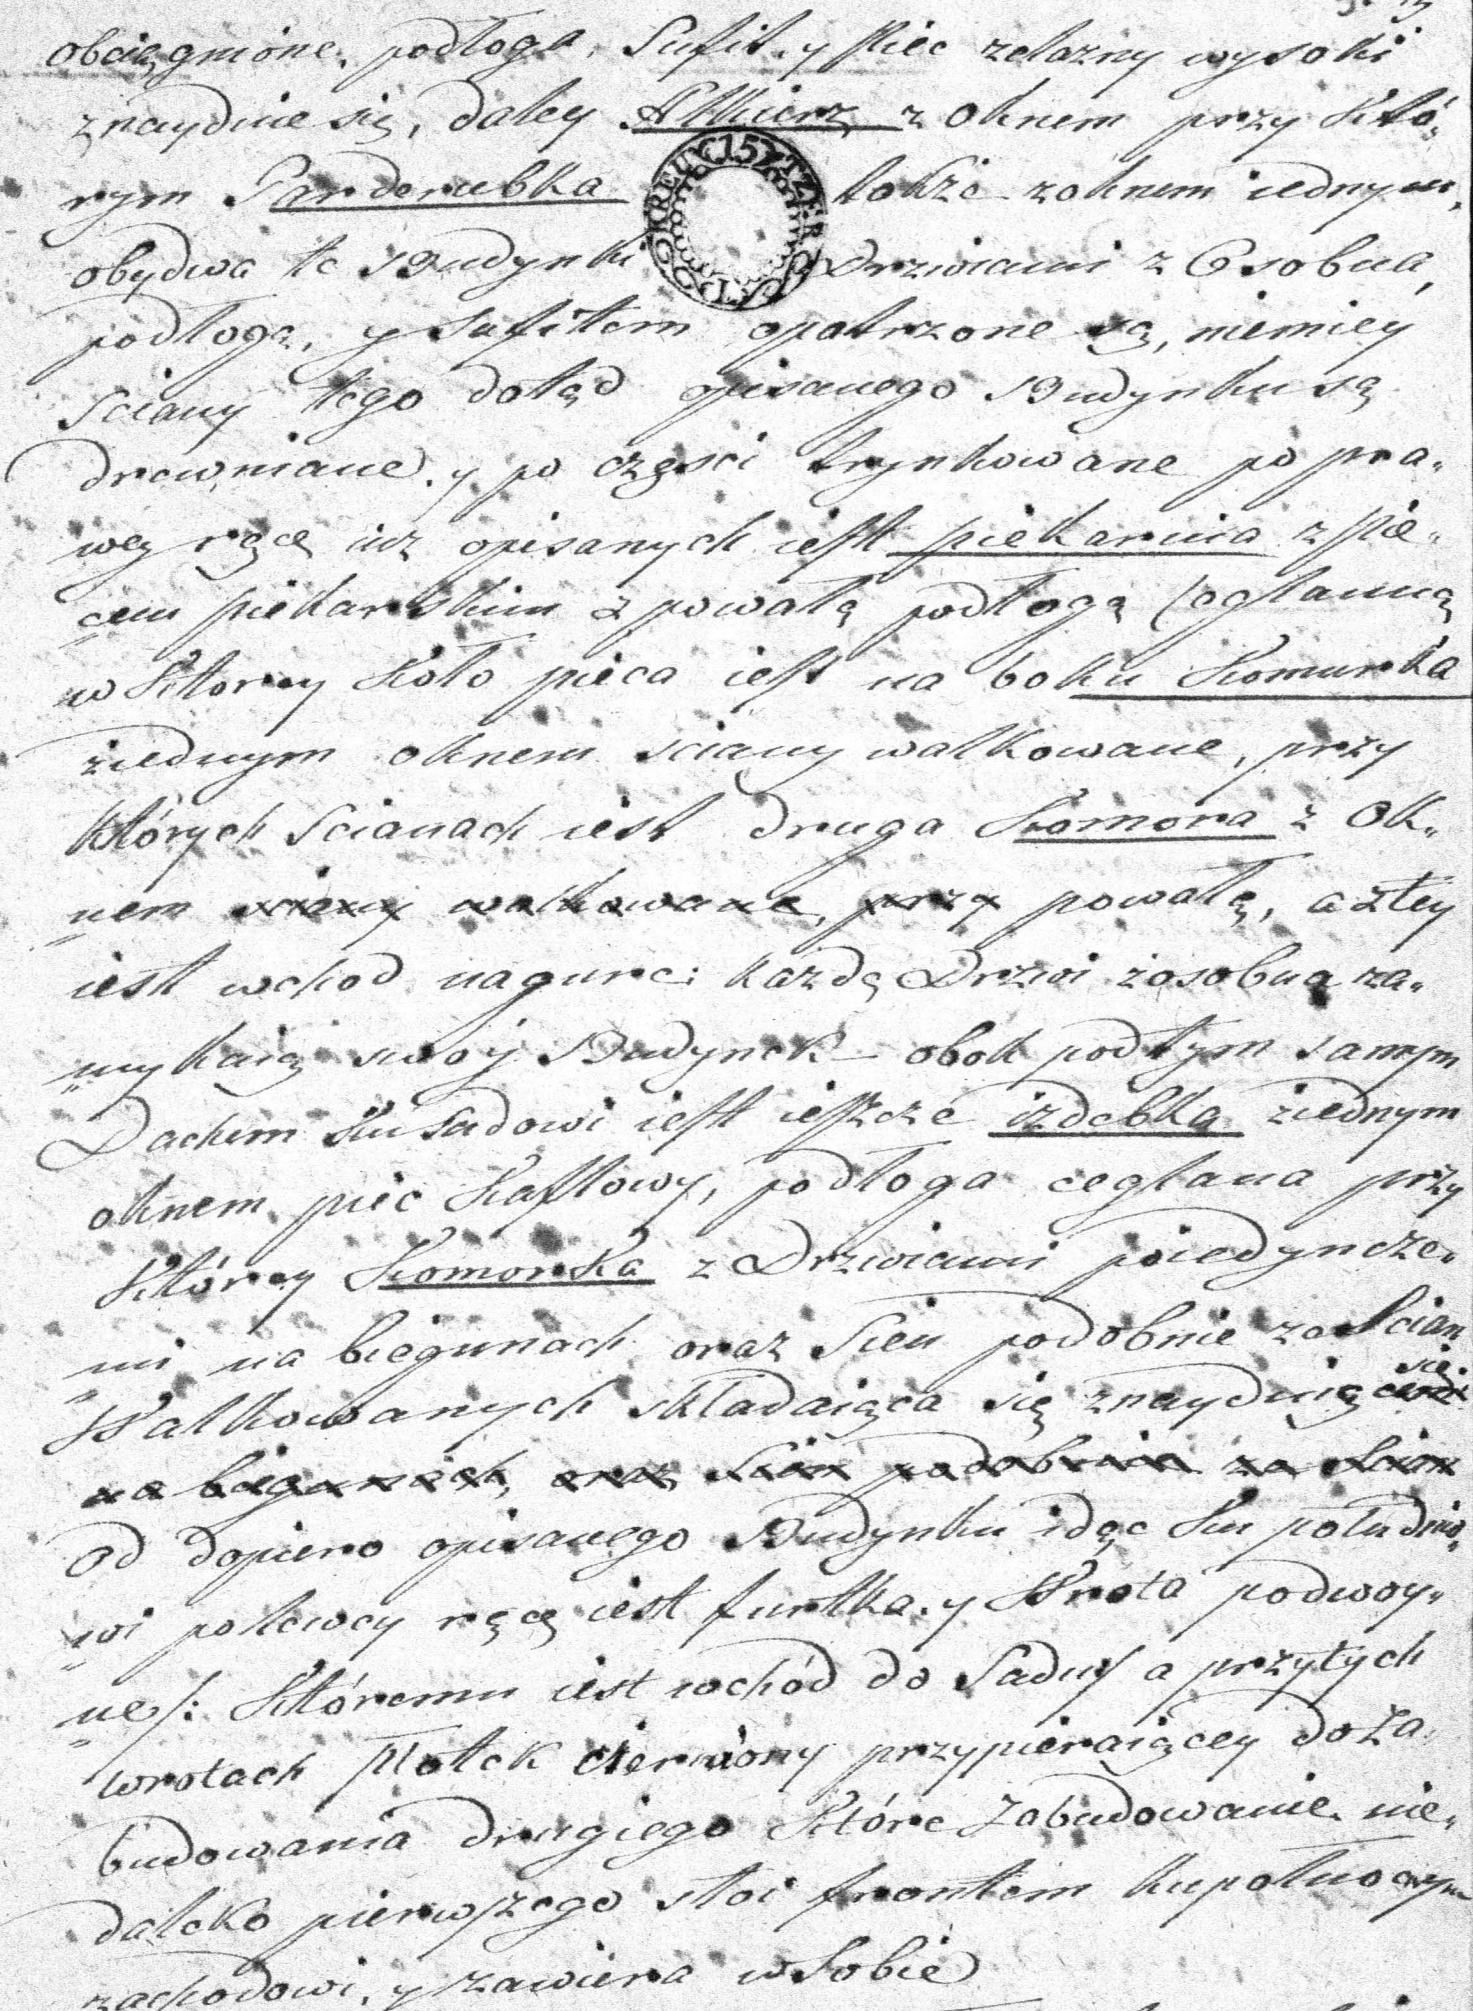 obciągnione, podłoga, Sufit, y piec zelazny wysoki
znayduie się, daley Alkierz z Oknem przy Któ„
rym Garderubka także z oknem iednym,
obydwa te Budynki Drzwiami z Osobna,
podłogą, y sufitem opatrzone są, niemiey
sciany tego dotąd opisanego Budynku są
drewniane, y po części trynkowane po pra„
wey ręce iuz opisanych iest piekarnia z pie„
„cem piekarskim z powałą podłogą ceglanną
w Ktorey Koło pieca iest na boku Komurka
ziednym oknem sciany walkowane, przy
których Scianach iest druga Komora z Ok„
„nem sciany walkowane, przy powałą, a ztey
iest wchod nagure: każdę Drzwi zosobna za„
„mykaią swoy Budynek – obok podtym samym
Dachem Ku sadowi iest ieszcze izdebka ziednym
oknem, piec Kaflowy, podłoga ceglana przy
Którey Komorka z Drzwiami poiedyncze„
„mi na biegunach oraz Sień podobnie ze Scian
Walkowanych składaiąca się znayduią się
na biegunach, oraz Sień podobnie ze Scian
Od dopiero opisanego Budynku idąc Ku południo„
„wi polewey ręce iest furtka, y Wrota podwoy„
„ne /: Któremu iest wchód do Sadu/ a przytych
wrotach Płotek cierniony przypieraiącey do Za„
budowania drugiego Które Zabudowanie nie„
daleko pierwszego stoi frontem Kupołnocnym
zachodowi, y zawiera w Sobie